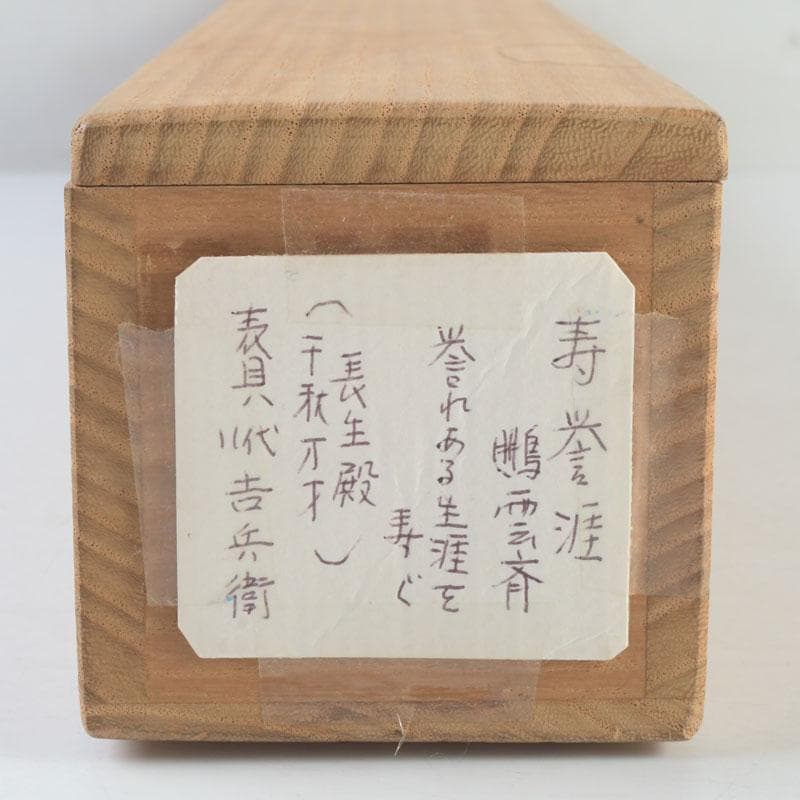 寿誉涯
鵬雲斉
誉れある生涯を
寿ぐ
長生殿
(千秋万才)
表具八代吉兵衛